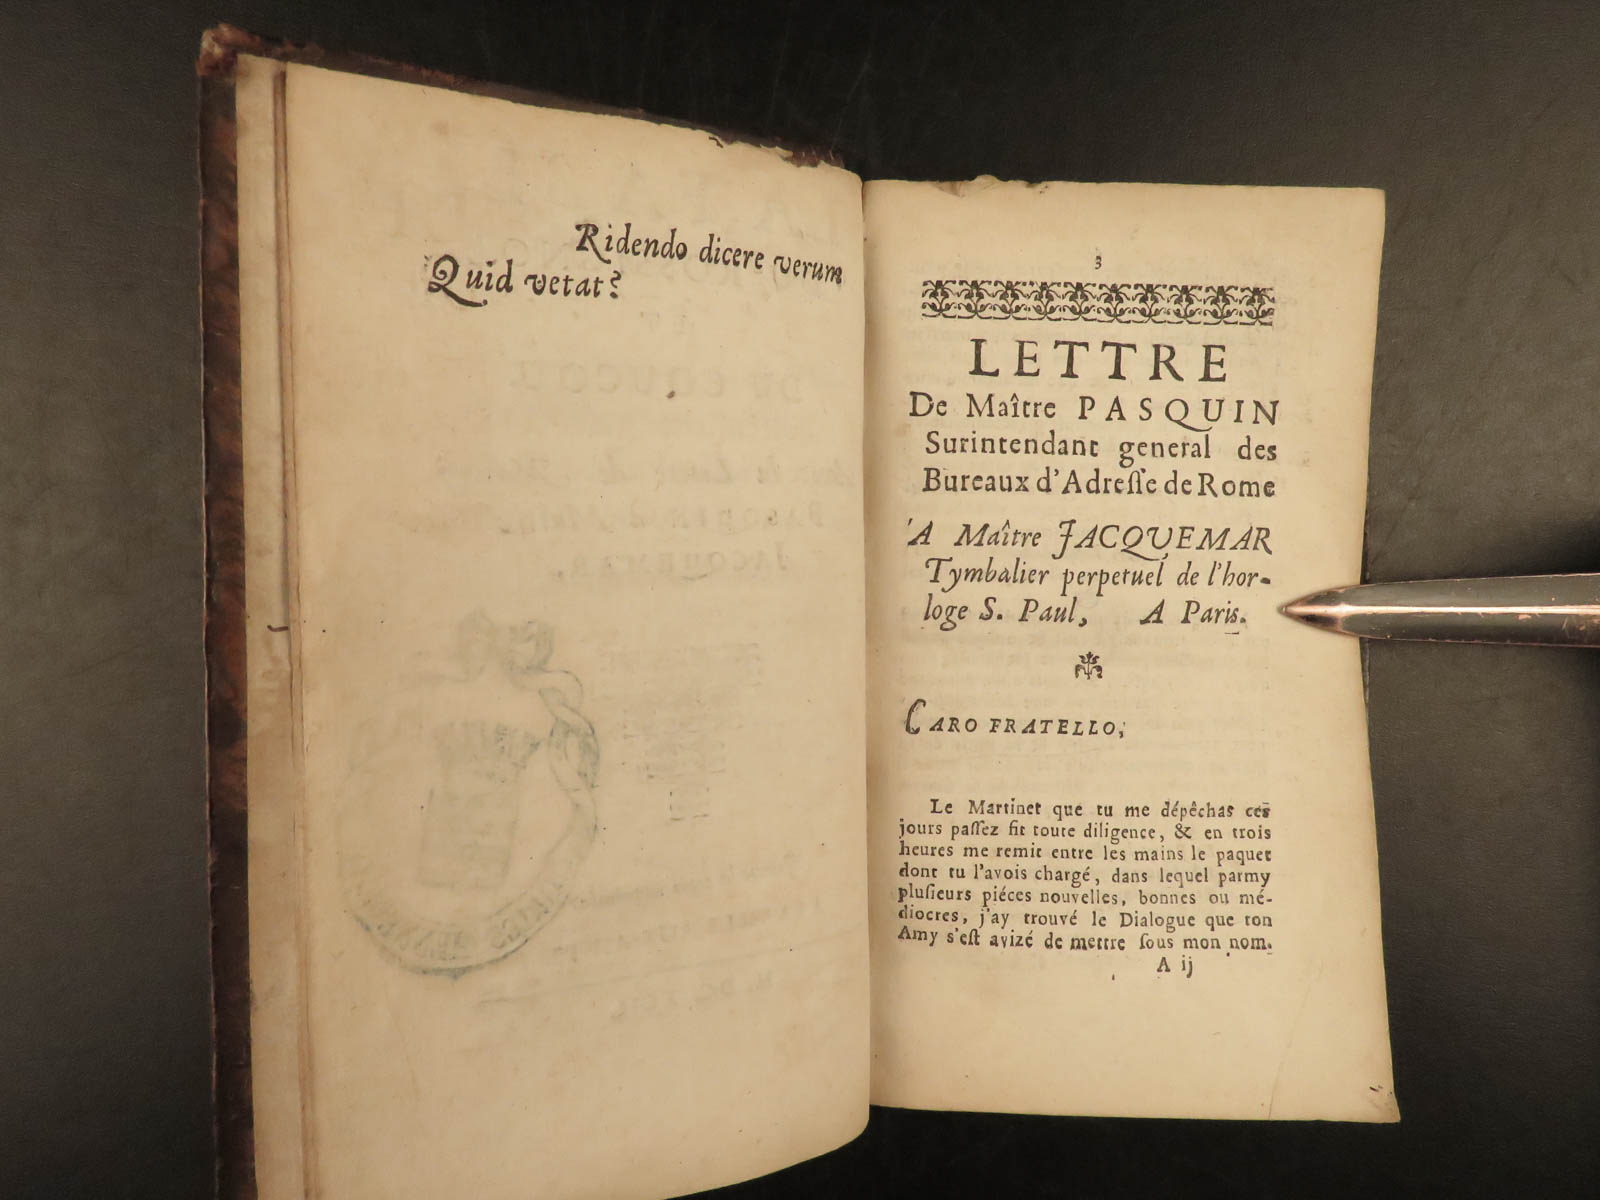 Ridendo dicere verum
Quid vetat?
3
LETTRE
De Maître PASQUIN
Surintendant general des
Bureaux d'Adreſſe de Rome
A Maître JACQUEMAR
Tymbalier perpetuel de l'hor-
loge S. Paul, A Paris.
CARO FRATELLO,
Le Martinet que tu me dépêchas ces
jours paſſez fit toute diligence, & en trois
heures me remit entre les mains le paquet
dont tu l'avois chargé, dans lequel parmy
pluſieurs piéces nouvelles, bonnes ou mé-
diocres, j'ay trouvé le Dialogue que ton
Amy s'eſt avizé de mettre ſous mon nom.
A ij